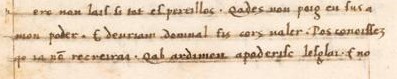 ere non lais si tot es perillos. Qades non poig eu sus a
mon poder. E deuriam dominal sus cors ualer. Pos conoissez
qe ia nō recreirai. Qab ardimen apoderisc lesglai. E no